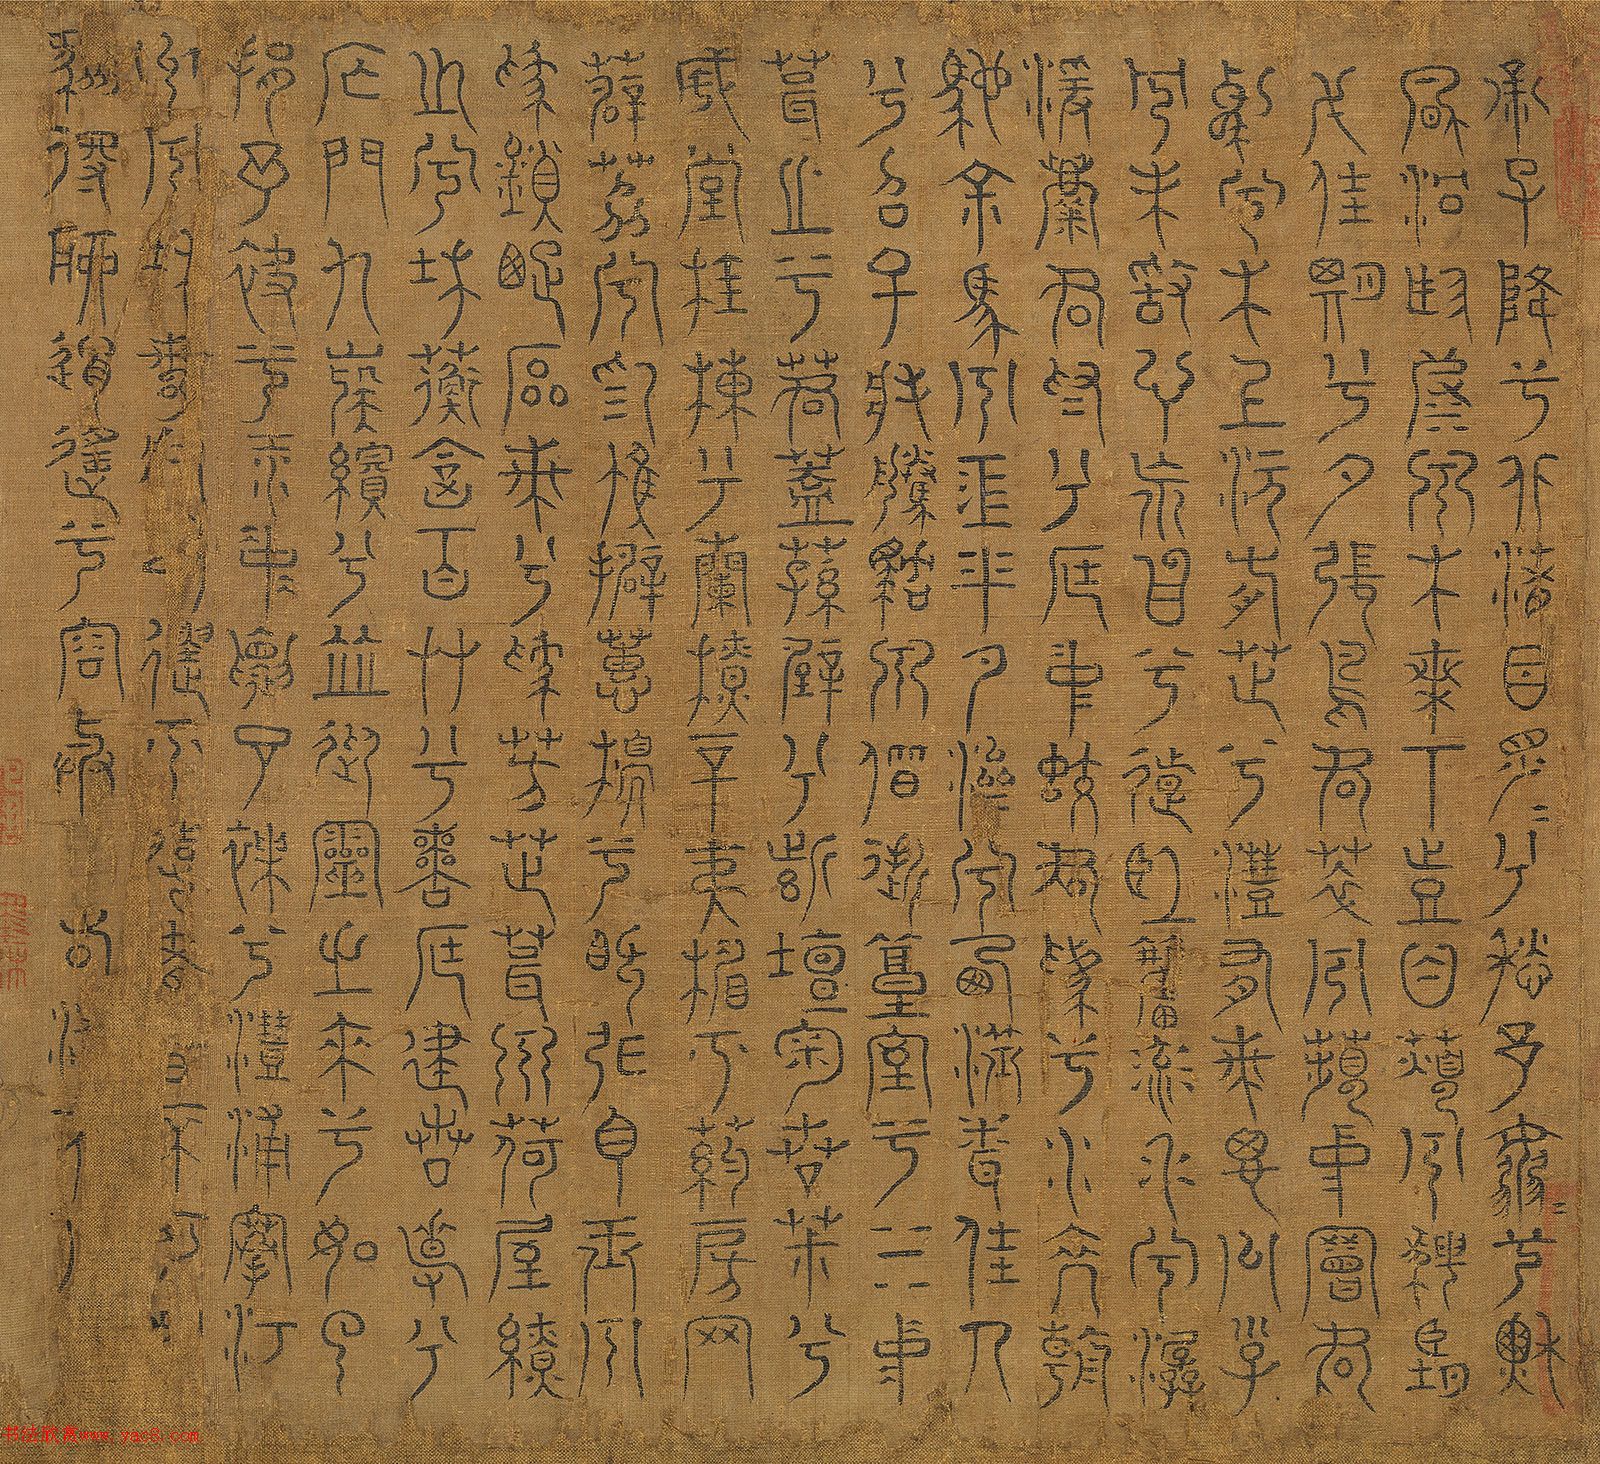 帝子降兮北渚目眇〻兮愁予嫋〻兮秋
風洞庭波兮木葉下登白薠兮騁望
與佳期兮夕張鳥何萃兮蘋中罾何
為兮木上沅有芷兮澧有蘭思公子
兮未敢言荒忽兮遠望觀流水兮潺
湲麋何食兮庭中蛟何為兮水裔朝
馳余馬兮江皋夕濟兮西澨聞佳人
兮召予將騰駕兮偕逝築室兮水中
葺之兮荷蓋蓀壁兮紫壇播芳椒兮
成堂桂棟兮蘭橑辛夷楣兮藥房罔
薜荔兮為帷擗蕙櫋兮既張白玉兮
為鎮疏石蘭兮為芳芷葺兮荷屋繚
之兮杜衡合百草兮實庭建芳馨兮
廡門九嶷繽兮並迎靈之來兮如雲
捐余袂兮江中遺余褋兮澧浦搴汀
洲兮杜若以遺遠者時不可兮
驟得聊逍遙兮容與
书法欣赏www.yac8.com